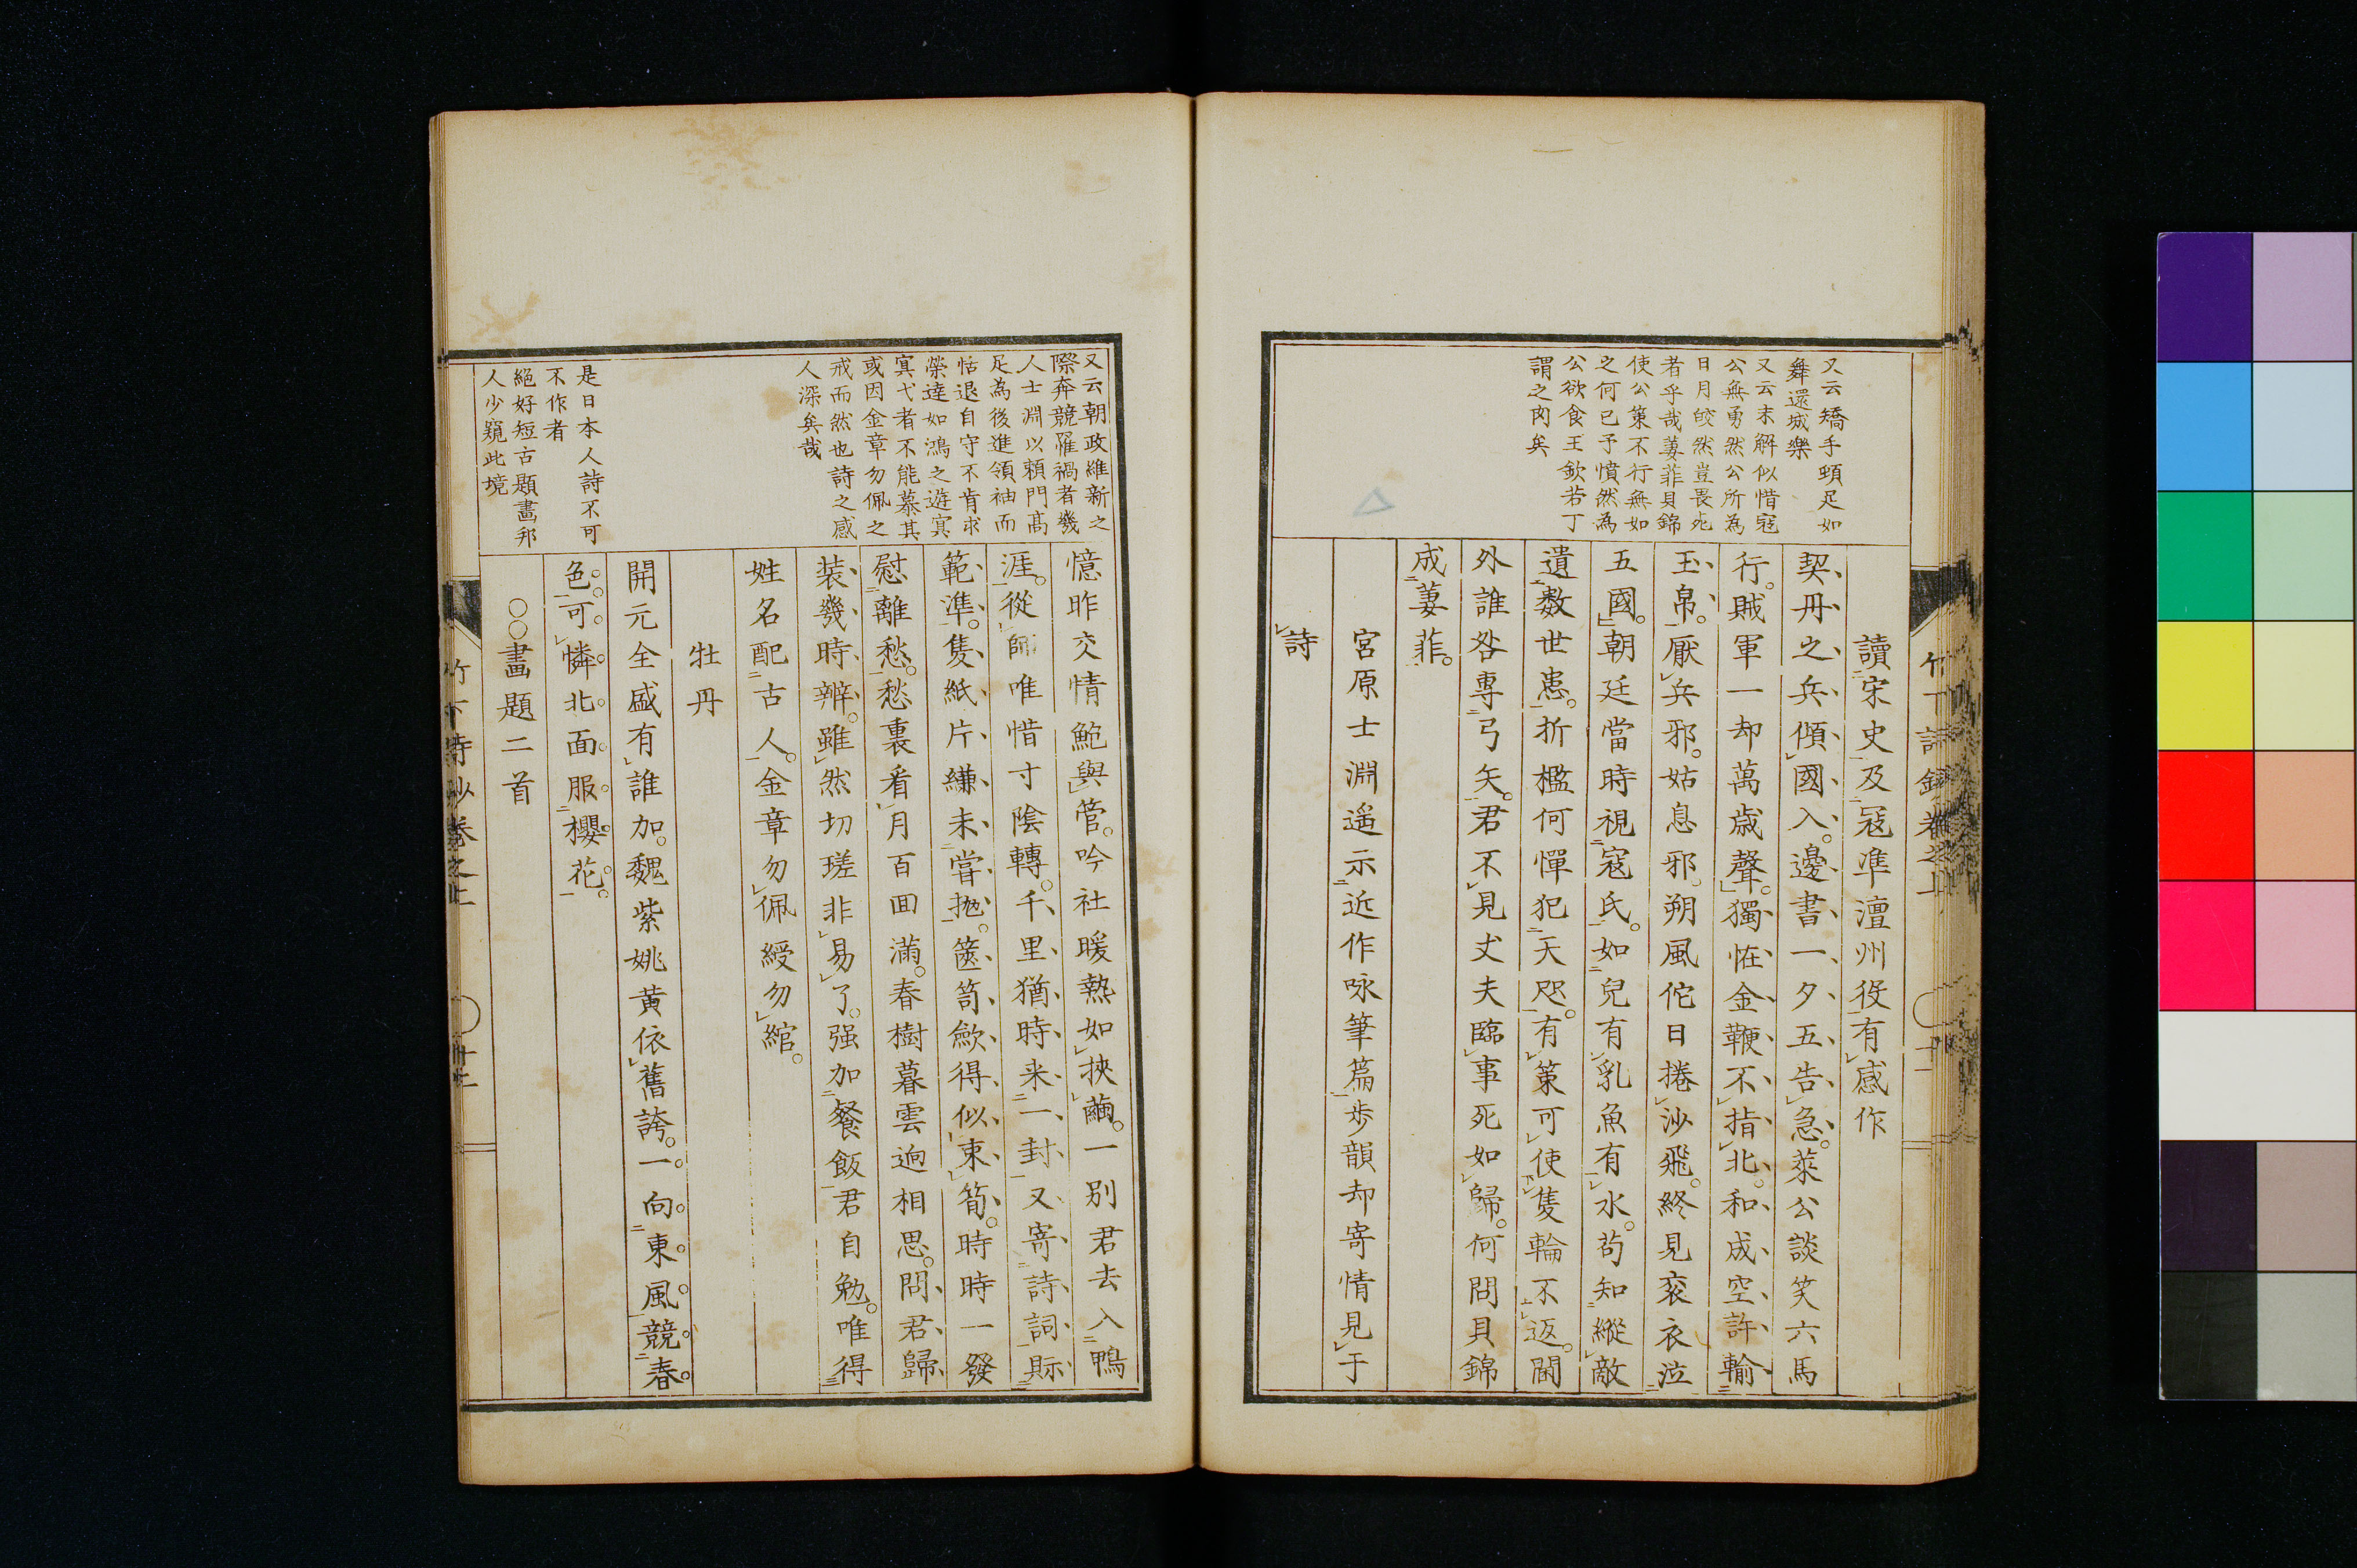 又云矯手頓足如
舞還城樂
又云末解似惜寇
公無勇然公所為
日月皎然豈畏死
者乎哉萋菲貝錦
使公策不行無如
之何已予憤然為
公欲食王欽若丁
謂之肉矣
讀宋史及寇準澶州役有感作
契丹之兵傾國入。邊書一夕五告急。萊公談笑六馬
行。賊軍一却萬歲聲。獨恠金鞭不指北。和成空許輸
玉帛。厭兵邪。姑息邪。朔風佗日捲沙飛。終見衮衣泣
五國。朝廷當時視寇氏。如兒有乳魚有水。苟知縱敵
遺數世患。折檻何憚犯天咫。有策可使隻輪不返。閫
外誰咎專弓矢。君不見丈夫臨事死如歸。何問貝錦
成萋菲。
宮原士淵遥示近作咏筆篇步韻却寄情見于
詩
又云朝政維新之
際奔競罹禍者幾
人士淵以賴門高
足為後進領袖而
恬退自守不肯求
榮達如鴻之遊冥
冥弋者不能慕其
或因金章勿佩之
戒而然也詩之感
人深矣哉
憶昨交情鮑與管。吟社暖熱如挾繭。一別君去入鴨
涯。從師唯惜寸陰轉。千里猶時来一封又寄詩詞賑
範準。隻紙片縑未嘗抛。篋笥歛得似束筍。時時一發
慰離愁。愁裏看月百回滿。春樹暮雲逈相思。問君歸
装幾時辦。雖然切瑳非易了。强加餐飯君自勉。唯得
姓名配古人。金章勿佩綬勿綰。
牡丹
是日本人詩不可
不作者
開元全盛有誰加。魏紫姚黃依舊誇。一向東風競春
色。可憐北面服櫻花。
絕好短古題畫邦
人少窺此境
○○畫題二首